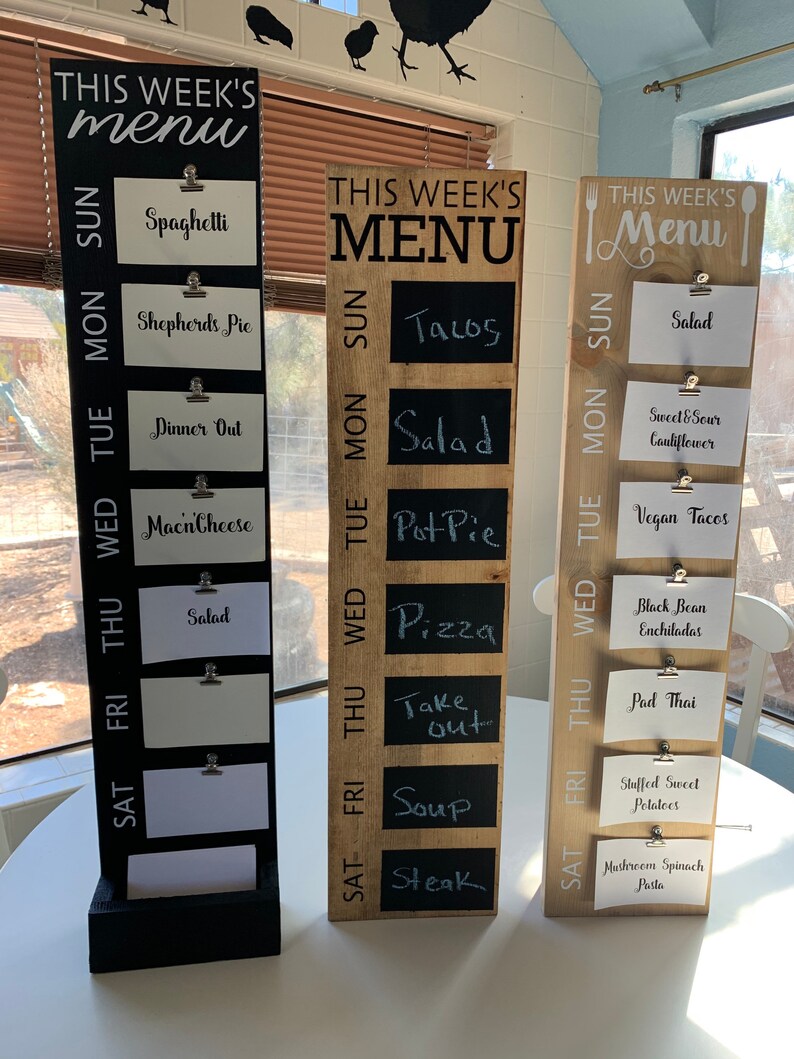 THIS WEEK'S
menu
SUN
Spaghetti
MON
Shepherds Pie
TUE
Dinner Out
WED
Mac'n'Cheese
THU
Salad
FRI
SAT
THIS WEEK'S
MENU
SUN
Tacos
MON
Salad
TUE
Pot Pie
WED
Pizza
THU
Take
out
FRI
Soup
SAT
Steak
THIS WEEK'S
Menu
SUN
Salad
MON
Sweet&Sour
Cauliflower
TUE
Vegan Tacos
WED
Black Bean
Enchiladas
THU
Pad Thai
FRI
Stuffed Sweet
Potatoes
SAT
Mushroom Spinach
Pasta